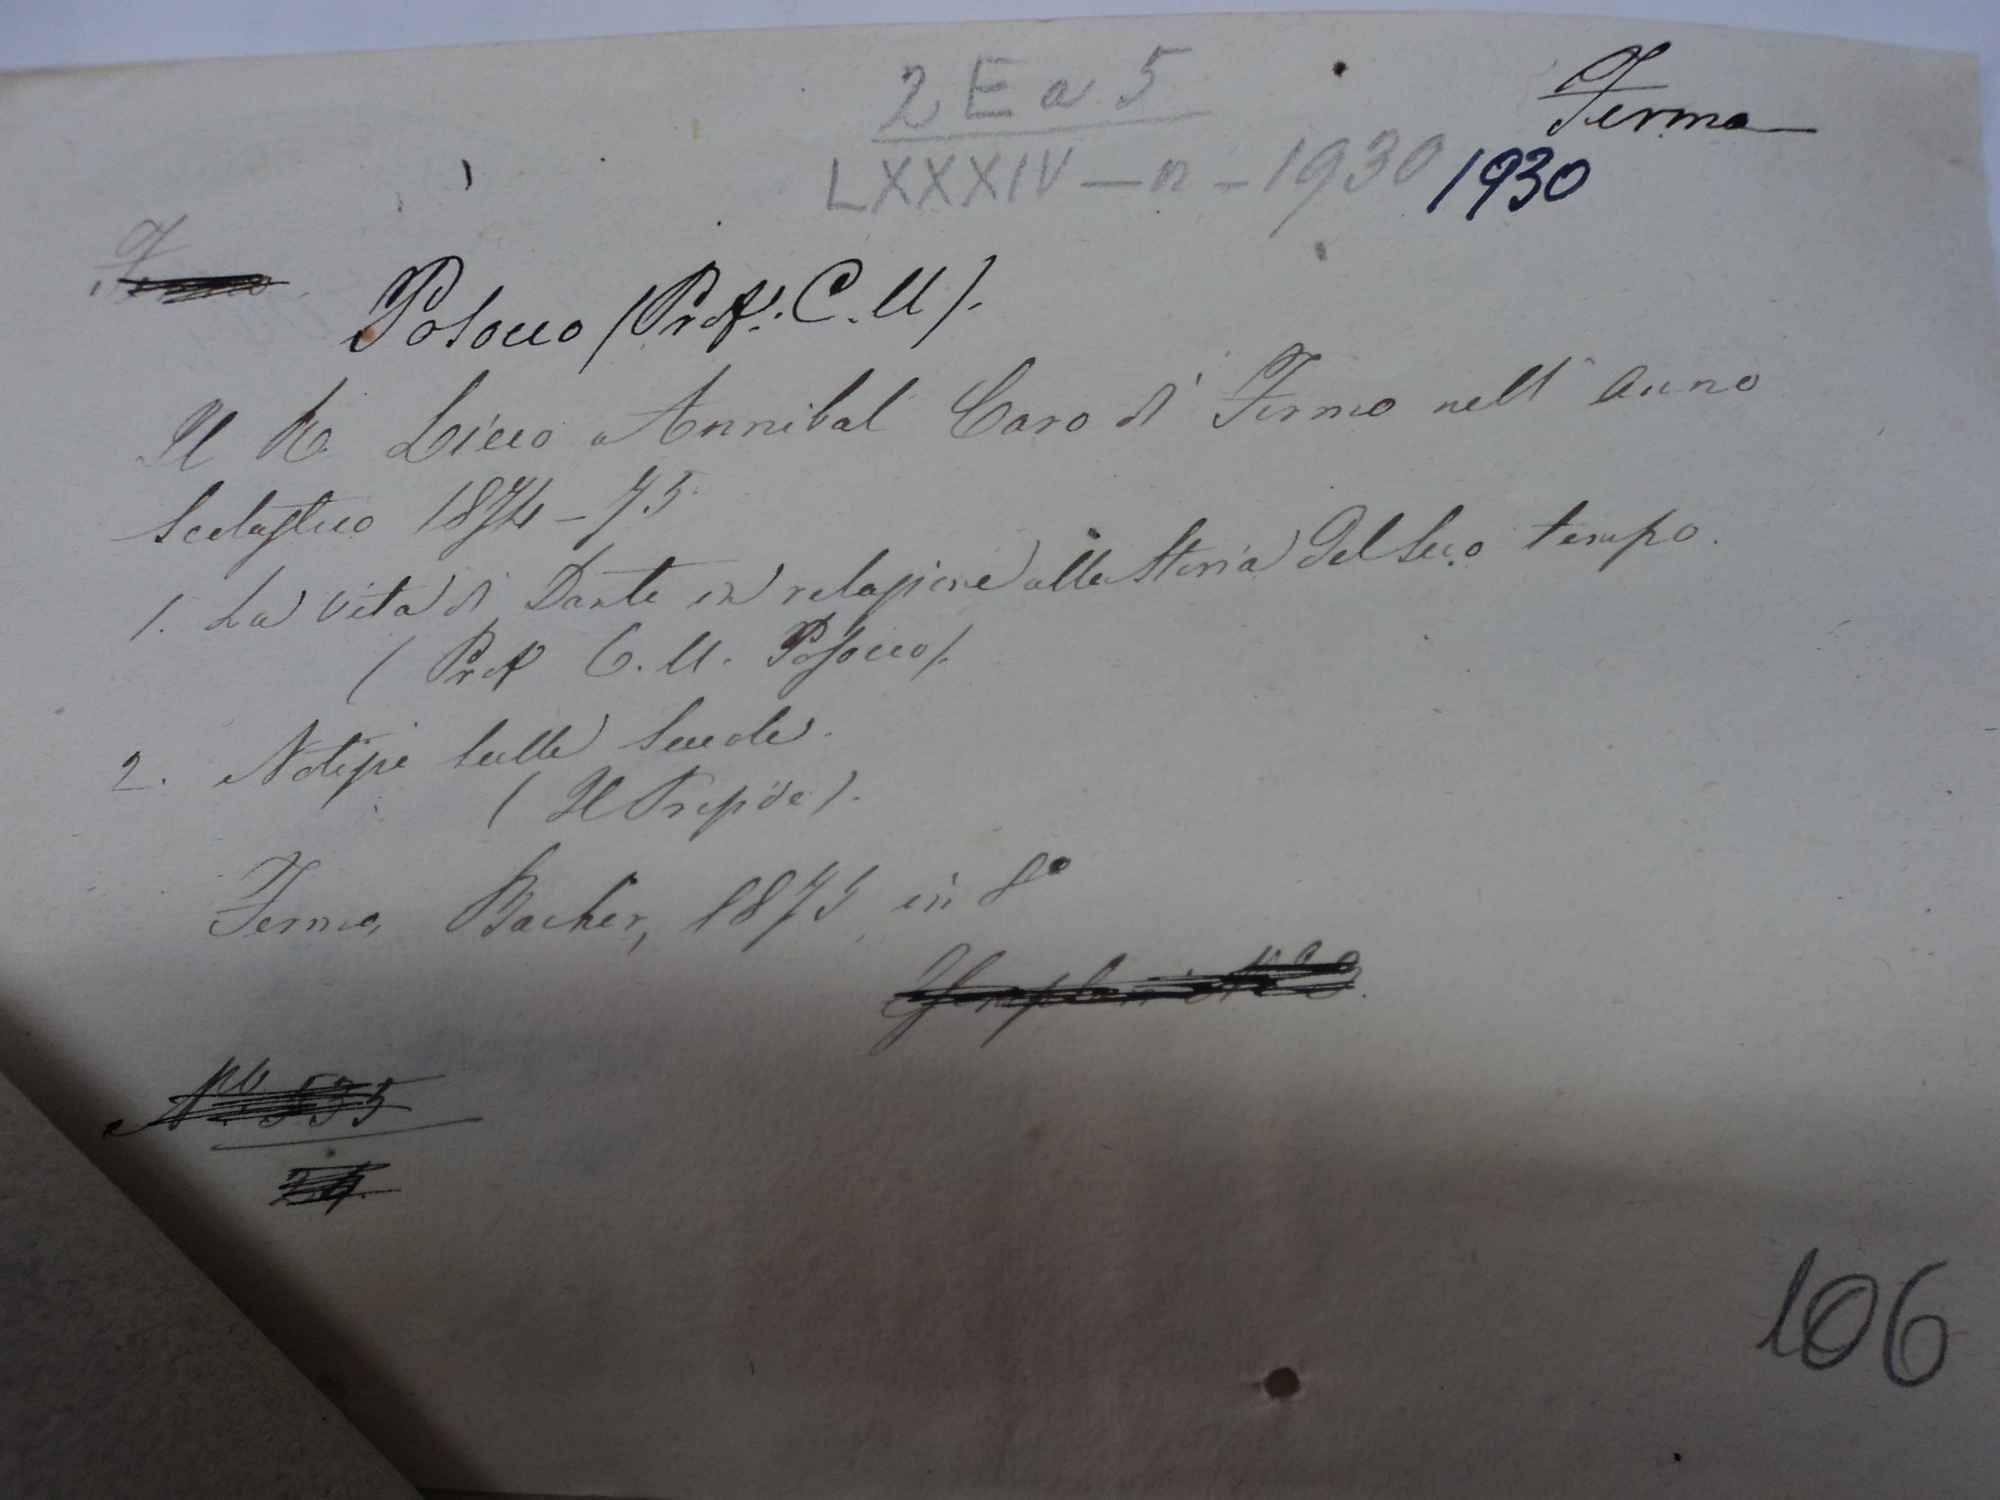 2 E a 5
Fermo
LXXXIV — n - 1930
1930
Posocco (Prof. C. M).
Il R. Liceo Annibal Caro di Fermo nell' anno
Scolastico 1874-75
1. La Vita di Dante in relazione alla Storia del suo tempo.
(Prof C. M. Posocco).
2. Notizie sulle Scuole.
(Il Preside).
Fermo, Bacher, 1875 in 8°
535
24
106